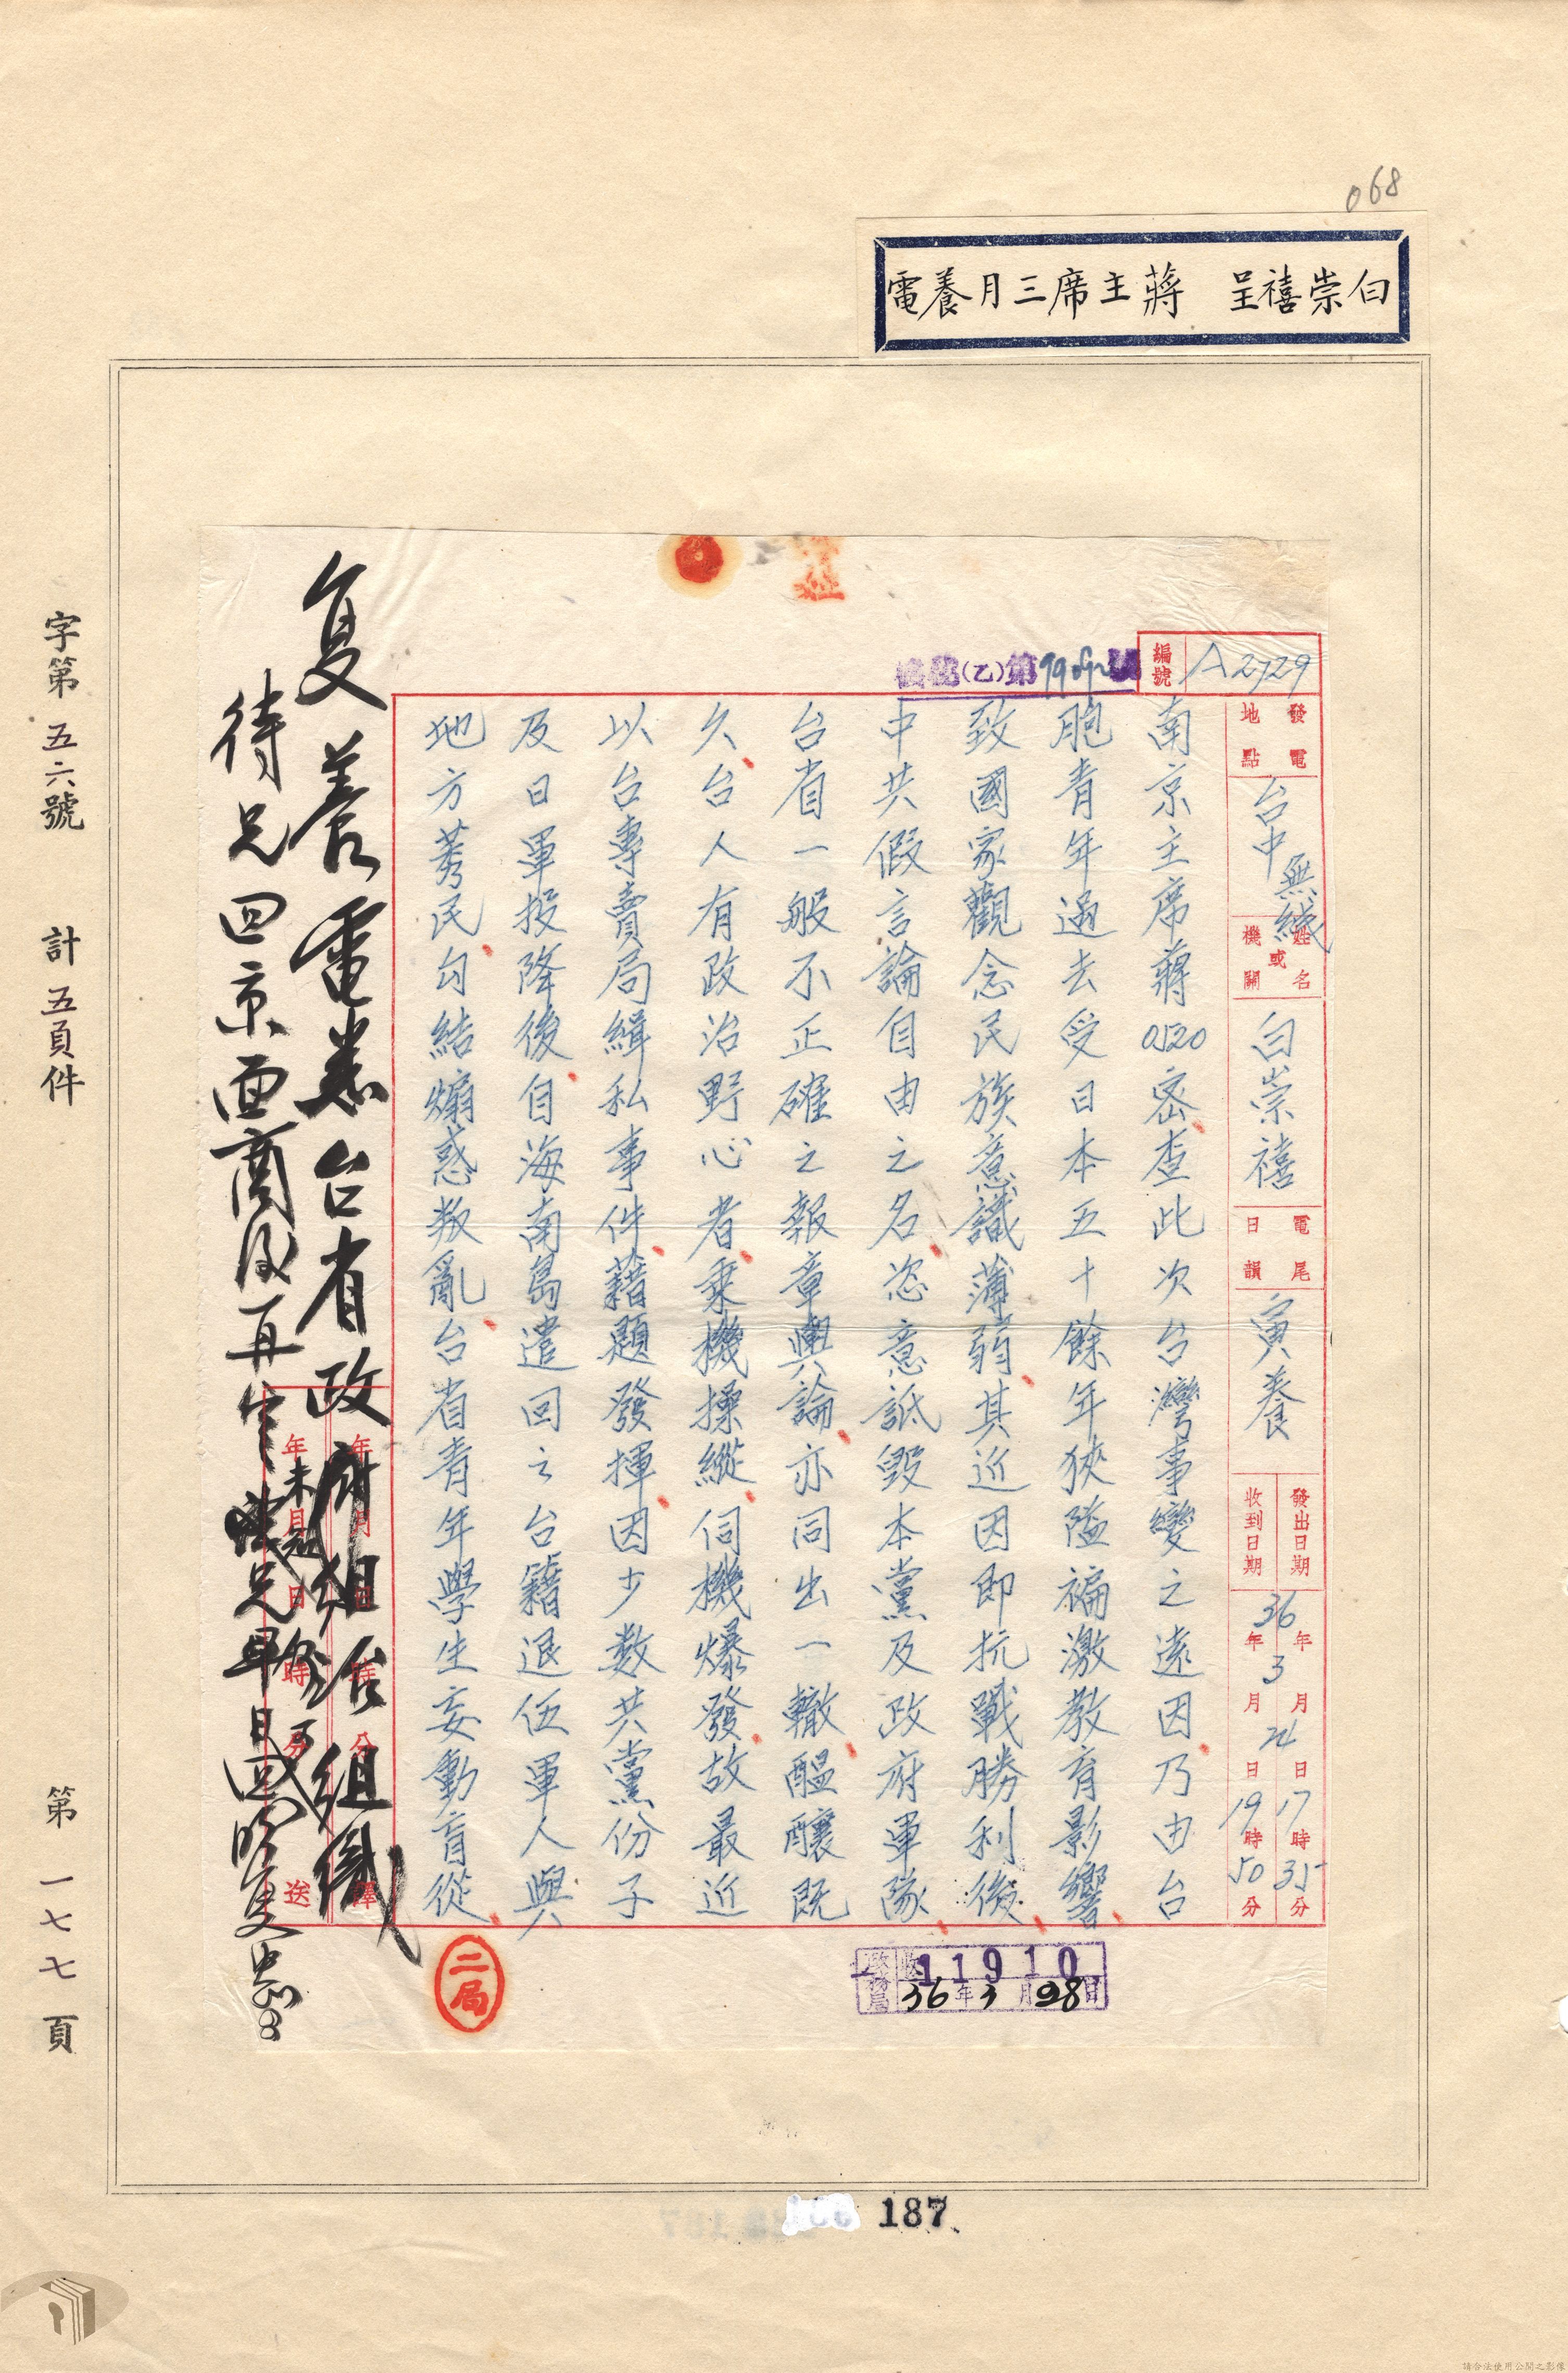 068
白崇禧呈　蔣主席三月養電
編號
A2729
(乙)第
號
發電地點
台中
無綫
姓名或機關
白崇禧
電尾日韻
寅養
發出日期
36年3月24日17時35分
收到日期
年月日19時50分
南京主席蔣0520密查此次台灣事變之遠因乃由台
胞青年過去受日本五十餘年狹隘褊激教育影響
致國家觀念民族意識薄弱其近因即抗戰勝利後
中共假言論自由之名恣意詆毀本黨及政府軍隊
台省一般不正確之報章輿論亦同出一轍醞釀既
久台人有政治野心者乘機操縱伺機爆發故最近
以台專賣局緝私事件藉題發揮因少數共黨份子
及日軍投降後自海南島遣回之台籍退伍軍人與
地方莠民勾結煽惑叛亂台省青年學生妄動盲從
年月日時分譯
年月日時分送
复養電悉台省政府組治組織
待兄回京面商後再定
兄
二局
收
11910
36年3月28日
字第五六號
計五頁件
第一七七頁
187
請合法使用公開之影像